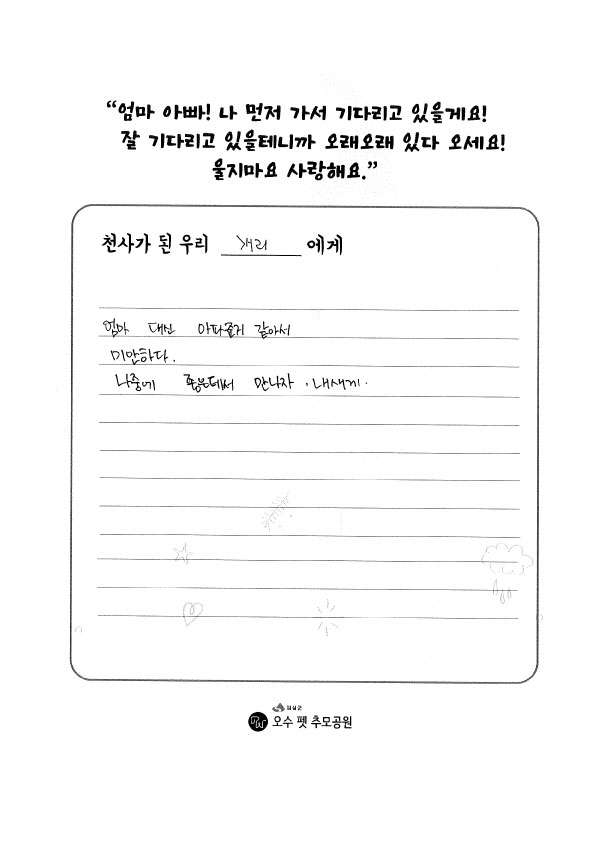 “엄마 아빠! 나 먼저 가서 기다리고 있을게요!
잘 기다리고 있을테니까 오래오래 있다 오세요!
울지마요 사랑해요.”
천사가 된 우리 개리 에게
엄마 대신 아파준거 같아서
미안하다.
나중에 좋은데서 만나자. 내새끼.
임실군
오수 펫 추모공원